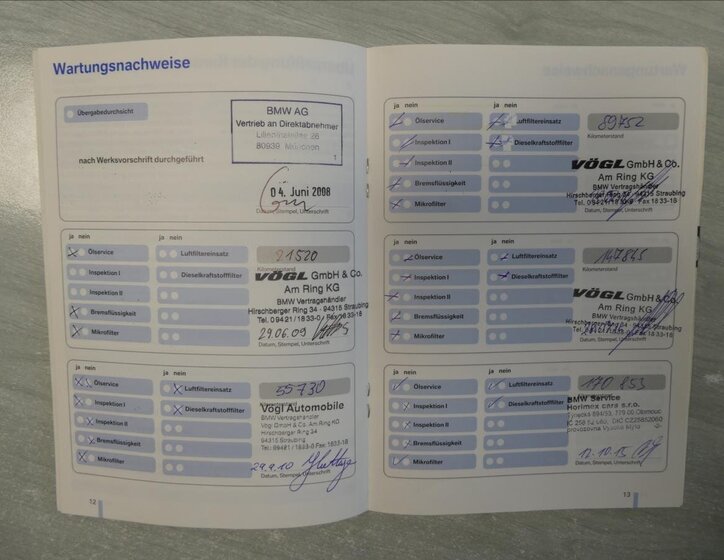 Wartungsnachweise
Übergabedurchsicht
BMW AG
Vertrieb an Direktabnehmer
80939 München
1
nach Werksvorschrift durchgeführt
04. Juni 2008
Datum, Stempel, Unterschrift
ja nein
Ölservice
Luftfiltereinsatz
21520
Inspektion I
Dieselkraftstofffilter
Kilometerstand
Inspektion II
VÖGL GmbH & Co.
Am Ring KG
BMW Vertragshändler
Bremsflüssigkeit
Hirschberger Ring 34 · 94315 Straubing
Tel. 09421/1833-0 / Fax 1833-18
Mikrofilter
29.06.09
Datum, Stempel, Unterschrift
ja nein
Ölservice
Luftfiltereinsatz
55730
Inspektion I
Dieselkraftstofffilter
Vogl Automobile
BMW Vertragshändler
Inspektion II
Vögl GmbH & Co. Am Ring KG
Hirschberger Ring 34
94315 Straubing
Bremsflüssigkeit
Tel.: 09421 / 1833-0 Fax: 1833-18
Mikrofilter
29.9.10
Datum, Stempel, Unterschrift
12
ja nein
ja nein
Ölservice
Luftfiltereinsatz
89752
Inspektion I
Dieselkraftstofffilter
Inspektion II
VÖGL GmbH & Co.
Am Ring KG
Bremsflüssigkeit
BMW Vertragshändler
Hirschberger Ring 34 · 94315 Straubing
Mikrofilter
Tel. 09421/1833-0 · Fax 1833-18
Datum, Stempel, Unterschrift
ja nein
ja nein
Ölservice
Luftfiltereinsatz
147845
Inspektion I
Dieselkraftstofffilter
Kilometerstand
Inspektion II
VÖGL GmbH & Co.
Am Ring KG
Bremsflüssigkeit
BMW Vertragshändler
Hirschberger Ring 34 · 94315 Straubing
Mikrofilter
Tel. 09421/1833-0 · Fax 1833-18
Datum, Stempel, Unterschrift
ja nein
ja nein
Ölservice
Luftfiltereinsatz
170 853
Inspektion I
Dieselkraftstofffilter
BMW Service
Horimex cars s.r.o.
Inspektion II
779 00 Olomouc
Bremsflüssigkeit
provozovna Vysoké Mýto
Mikrofilter
12.10.15
Datum, Stempel, Unterschrift
13